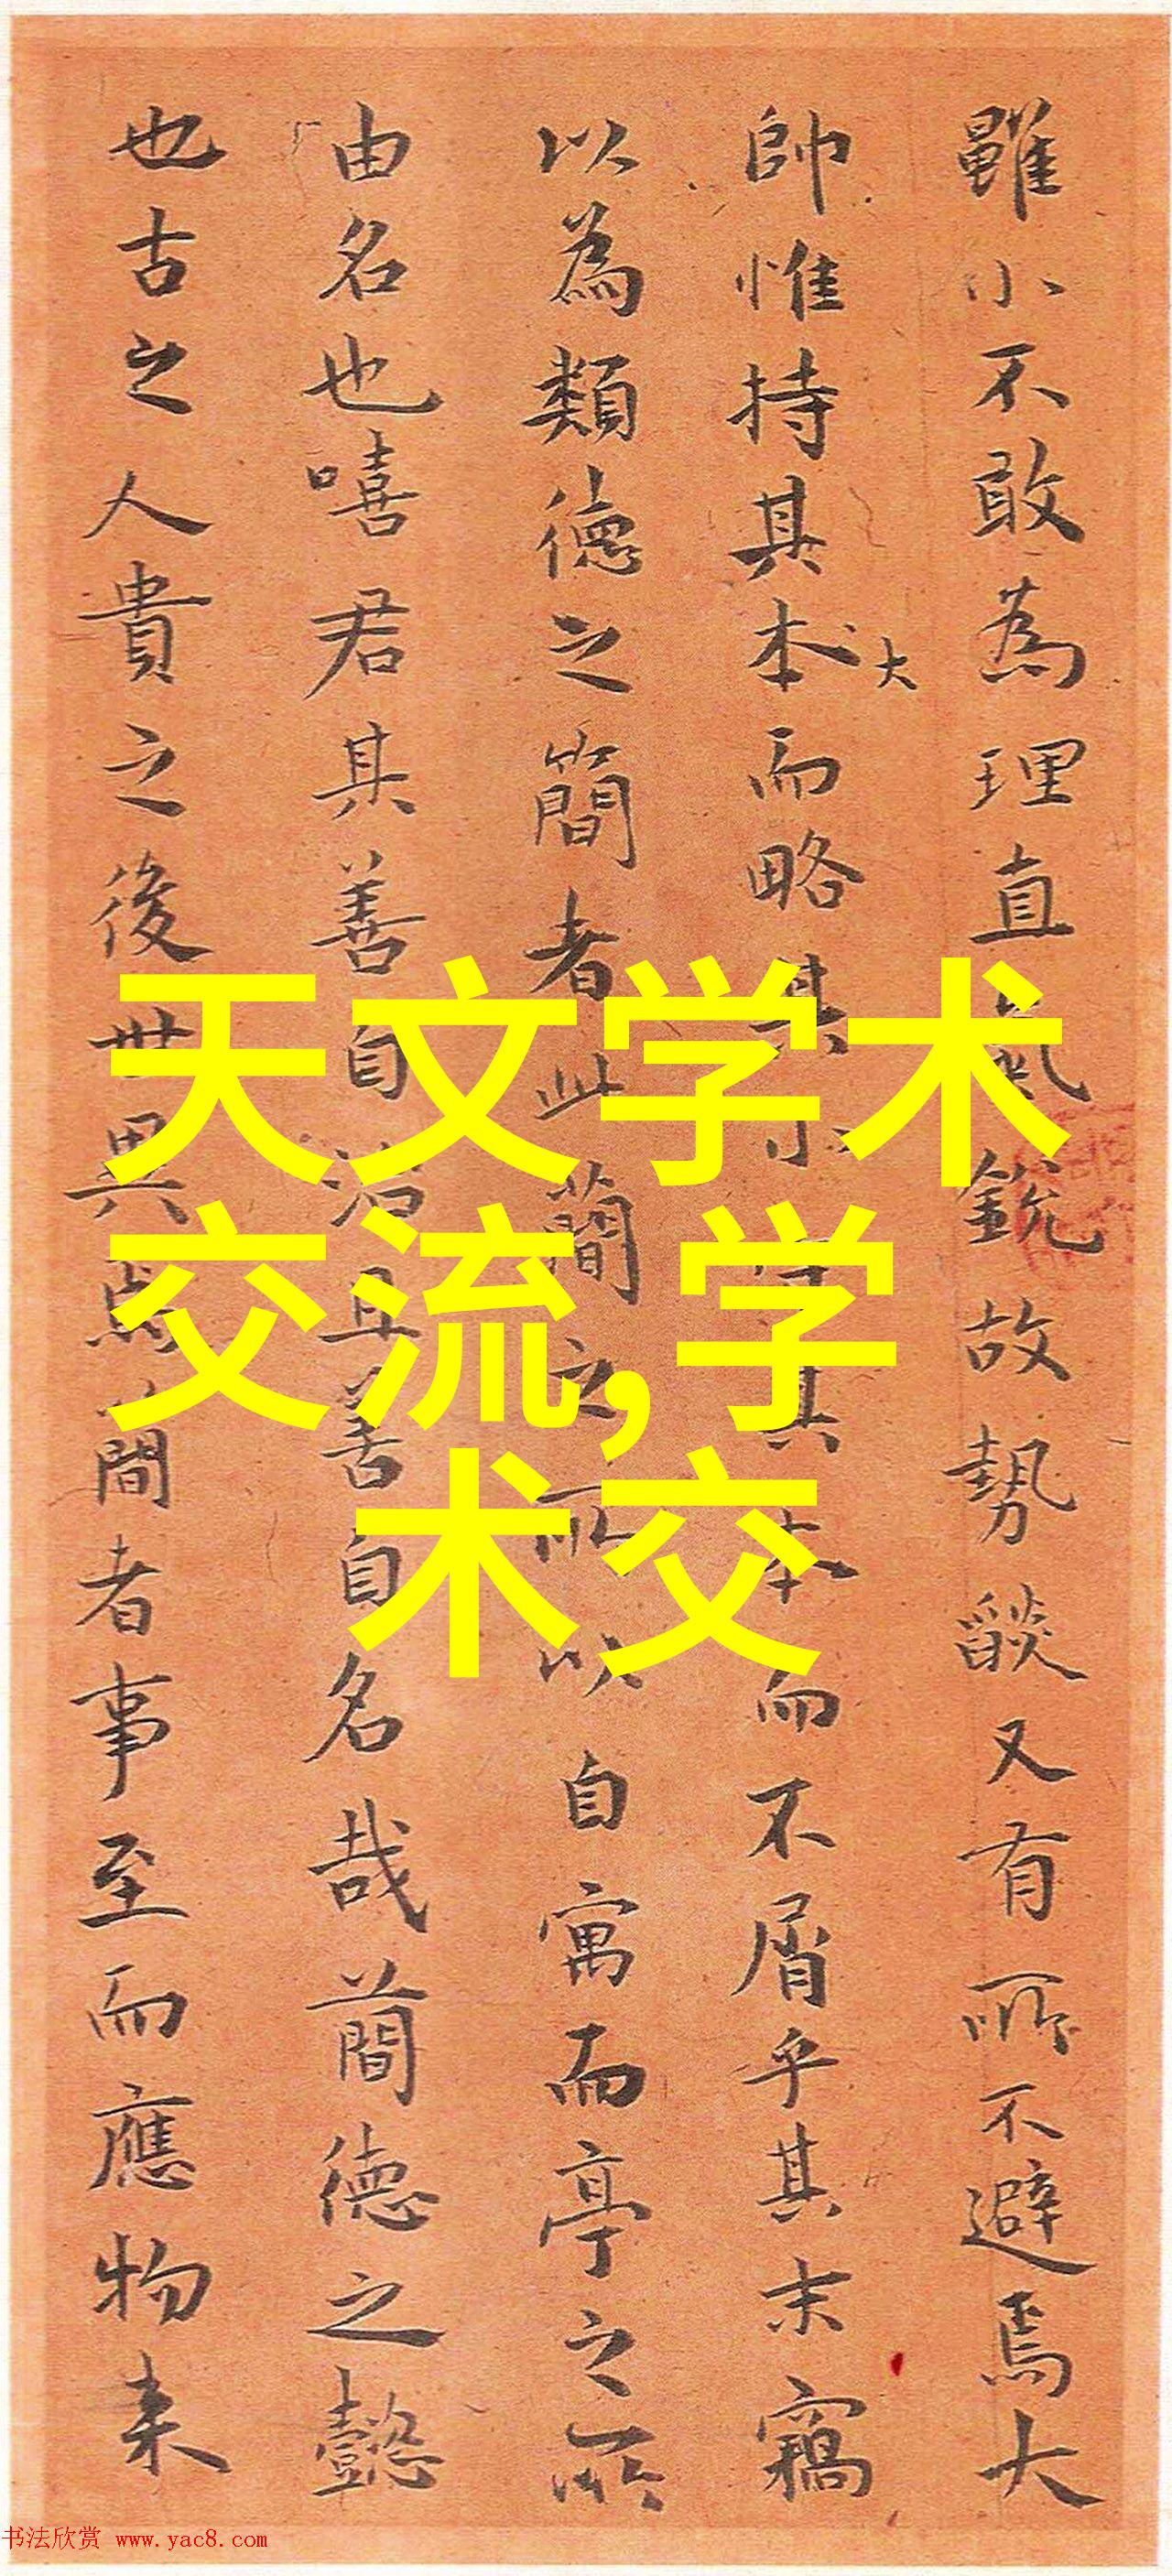 雖小不敢為理直氣銳故勢燄又有所不避焉大
帥惟持其本而略其小其本而不屑乎其末竊
大
以為類德之簡者此簡之所以自寓而亭之所
由名也嘻君其善自治且善自名哉簡德之懿
也古之人貴之後世異焉簡者事至而應物来
天文学术
交流,学
术交
书法欣赏 www.yac8.com